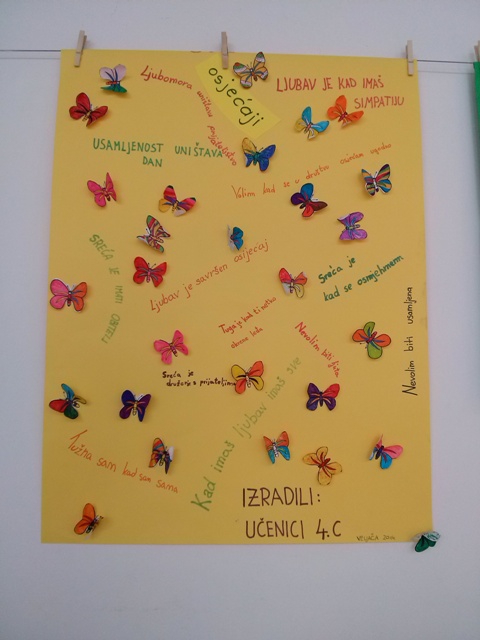 osjećaji
Ljubomora uništava prijateljstvo
LJUBAV JE KAD IMAŠ
SIMPATIJU
USAMLJENOST UNIŠTAVA
DAN
Volim kad se u društvu osjećam ugodno
SREĆA JE IMATI OBITELJ
Ljubav je savršen osjećaj
Sreća je
kad se osmjehnem
Tuga je kad ti netko
Nevolim biti
Nevolim biti usamljena
Sreća je
druženje s prijateljima
Kad imaš ljubav imaš sve
Tužna sam kad sam sama
IZRADILI:
UČENICI 4.C